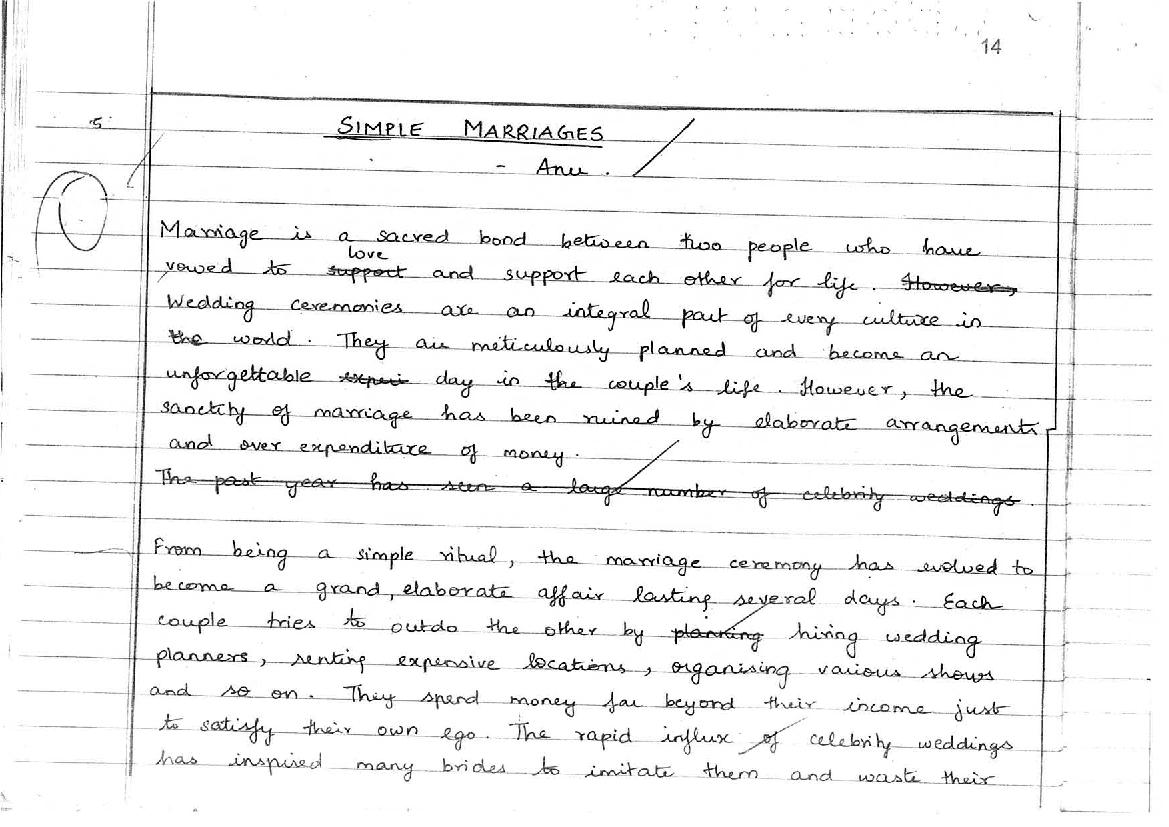 14
5.
SIMPLE MARRIAGES
- Anu.
Marriage is a sacred bond between two people who have
love
vowed to support and support each other for life. However,
Wedding ceremonies are an integral part of every culture in
the world. They are meticulously planned and become an
unforgettable experi day in the couple's life. However, the
sanctity of marriage has been ruined by elaborate arrangements
and over expenditure of money.
The past year has seen a large number of celebrity weddings.
From being a simple ritual, the marriage ceremony has evolved to
become a grand, elaborate affair lasting several days. Each
couple tries to outdo the other by planning hiring wedding
planners, renting expensive locations, organising various shows
and so on. They spend money far beyond their income just
to satisfy their own ego. The rapid influx of celebrity weddings
has inspired many brides to imitate them and waste their